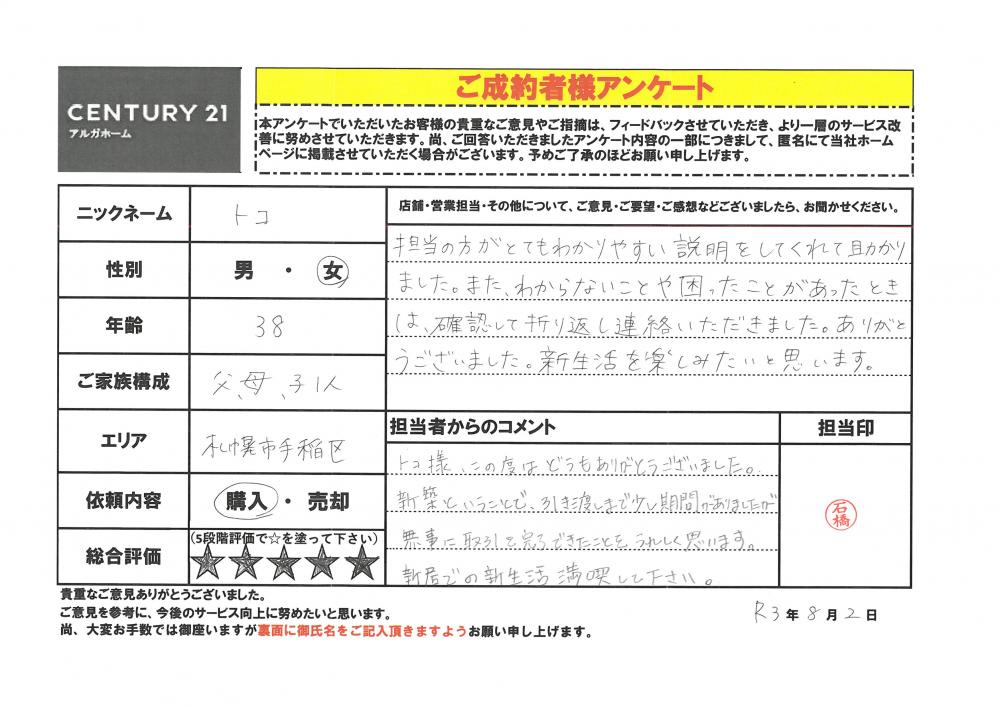 CENTURY 21
アルガホーム
ご成約者様アンケート
本アンケートでいただいたお客様の貴重なご意見やご指摘は、フィードバックさせていただき、より一層のサービス改
善に努めさせていただきます。尚、ご回答いただきましたアンケート内容の一部につきまして、匿名にて当社ホーム
ページに掲載させていただく場合がございます。予めご了承のほどお願い申し上げます。
ニックネーム トコ
性別 男 ・ 女
年齢 38
ご家族構成 父、母、子1人
エリア 札幌市手稲区
依頼内容 購入 ・ 売却
総合評価 (5段階評価で☆を塗って下さい)
店舗・営業担当・その他について、ご意見・ご要望・ご感想などございましたら、お聞かせください。
担当の方がとてもわかりやすい説明をしてくれて助かり
ました。また、わからないことや困ったことがあったとき
は、確認して折り返し連絡いただきました。ありがと
うございました。新生活を楽しみたいと思います。
担当者からのコメント
トコ様、この度はどうもありがとうございました。
新築ということで、引き渡しまで少し期間がありましたが
無事に取引を完了できたことを、うれしく思います。
新居での新生活満喫して下さい。
担当印
石橋
貴重なご意見ありがとうございました。
ご意見を参考に、今後のサービス向上に努めたいと思います。
尚、大変お手数では御座いますが裏面に御氏名をご記入頂きますようお願い申し上げます。
R3年8月2日